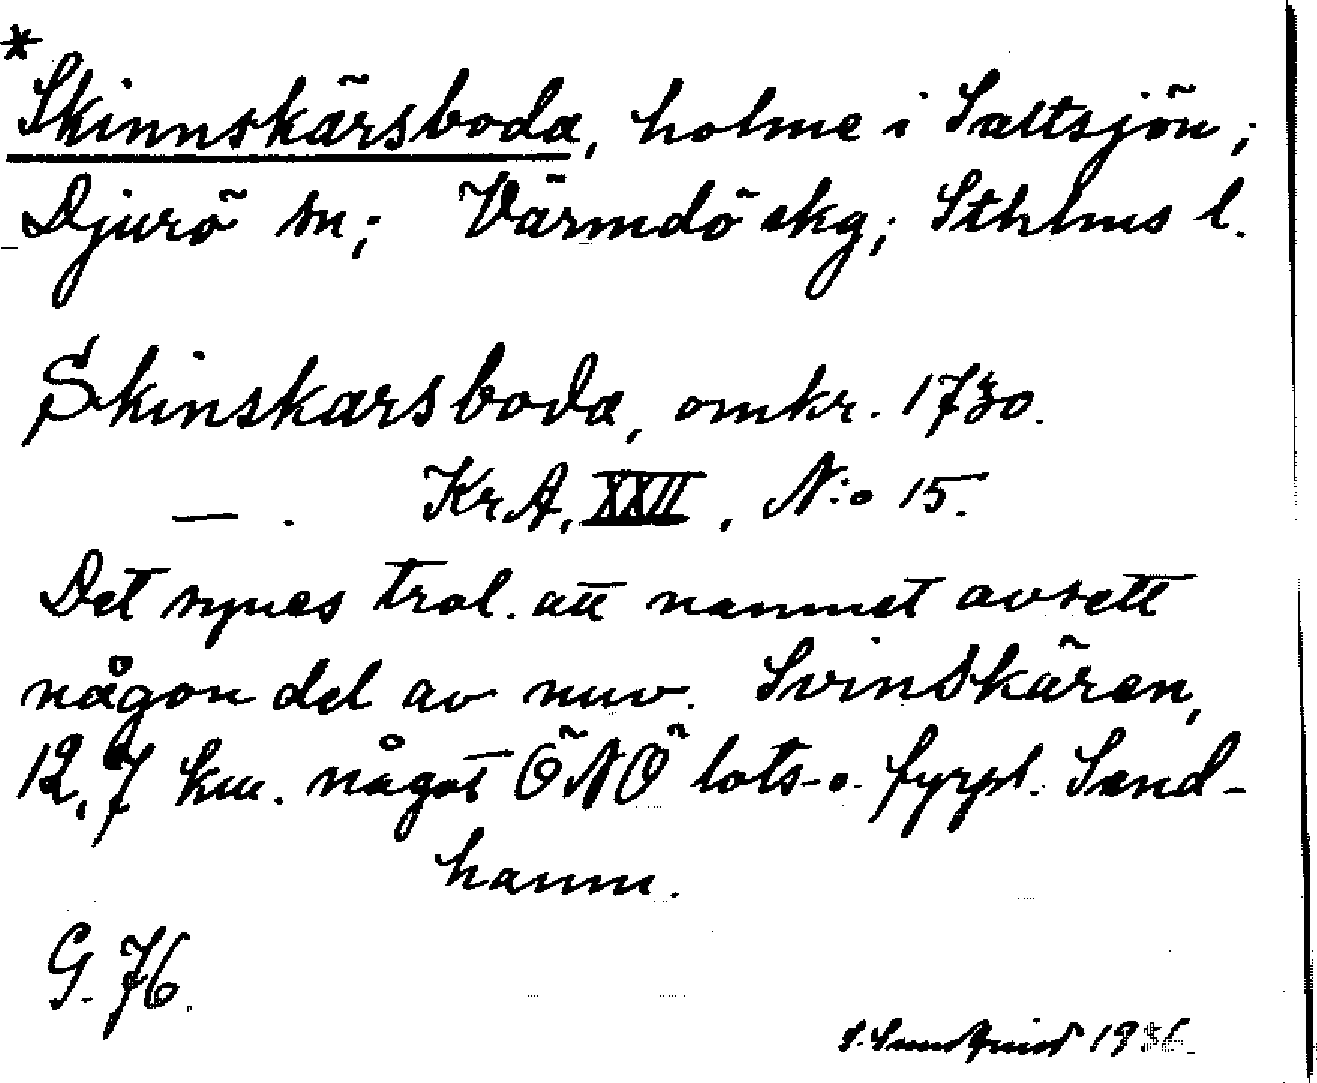 *
Skinnskärsboda, holme i Saltsjön;
Djurö sn; Värmdö skg; Sthlms l.
Skinskarsboda, omkr. 1730.
— . KrA, XXII, N:o 15.
Det synes trol. att namnet avsett
någon del av nuv. Svinskären,
12,7 km. något ÖNÖ lots- o. fyrpl. Sand-
hamn.
G. 76.
1936.